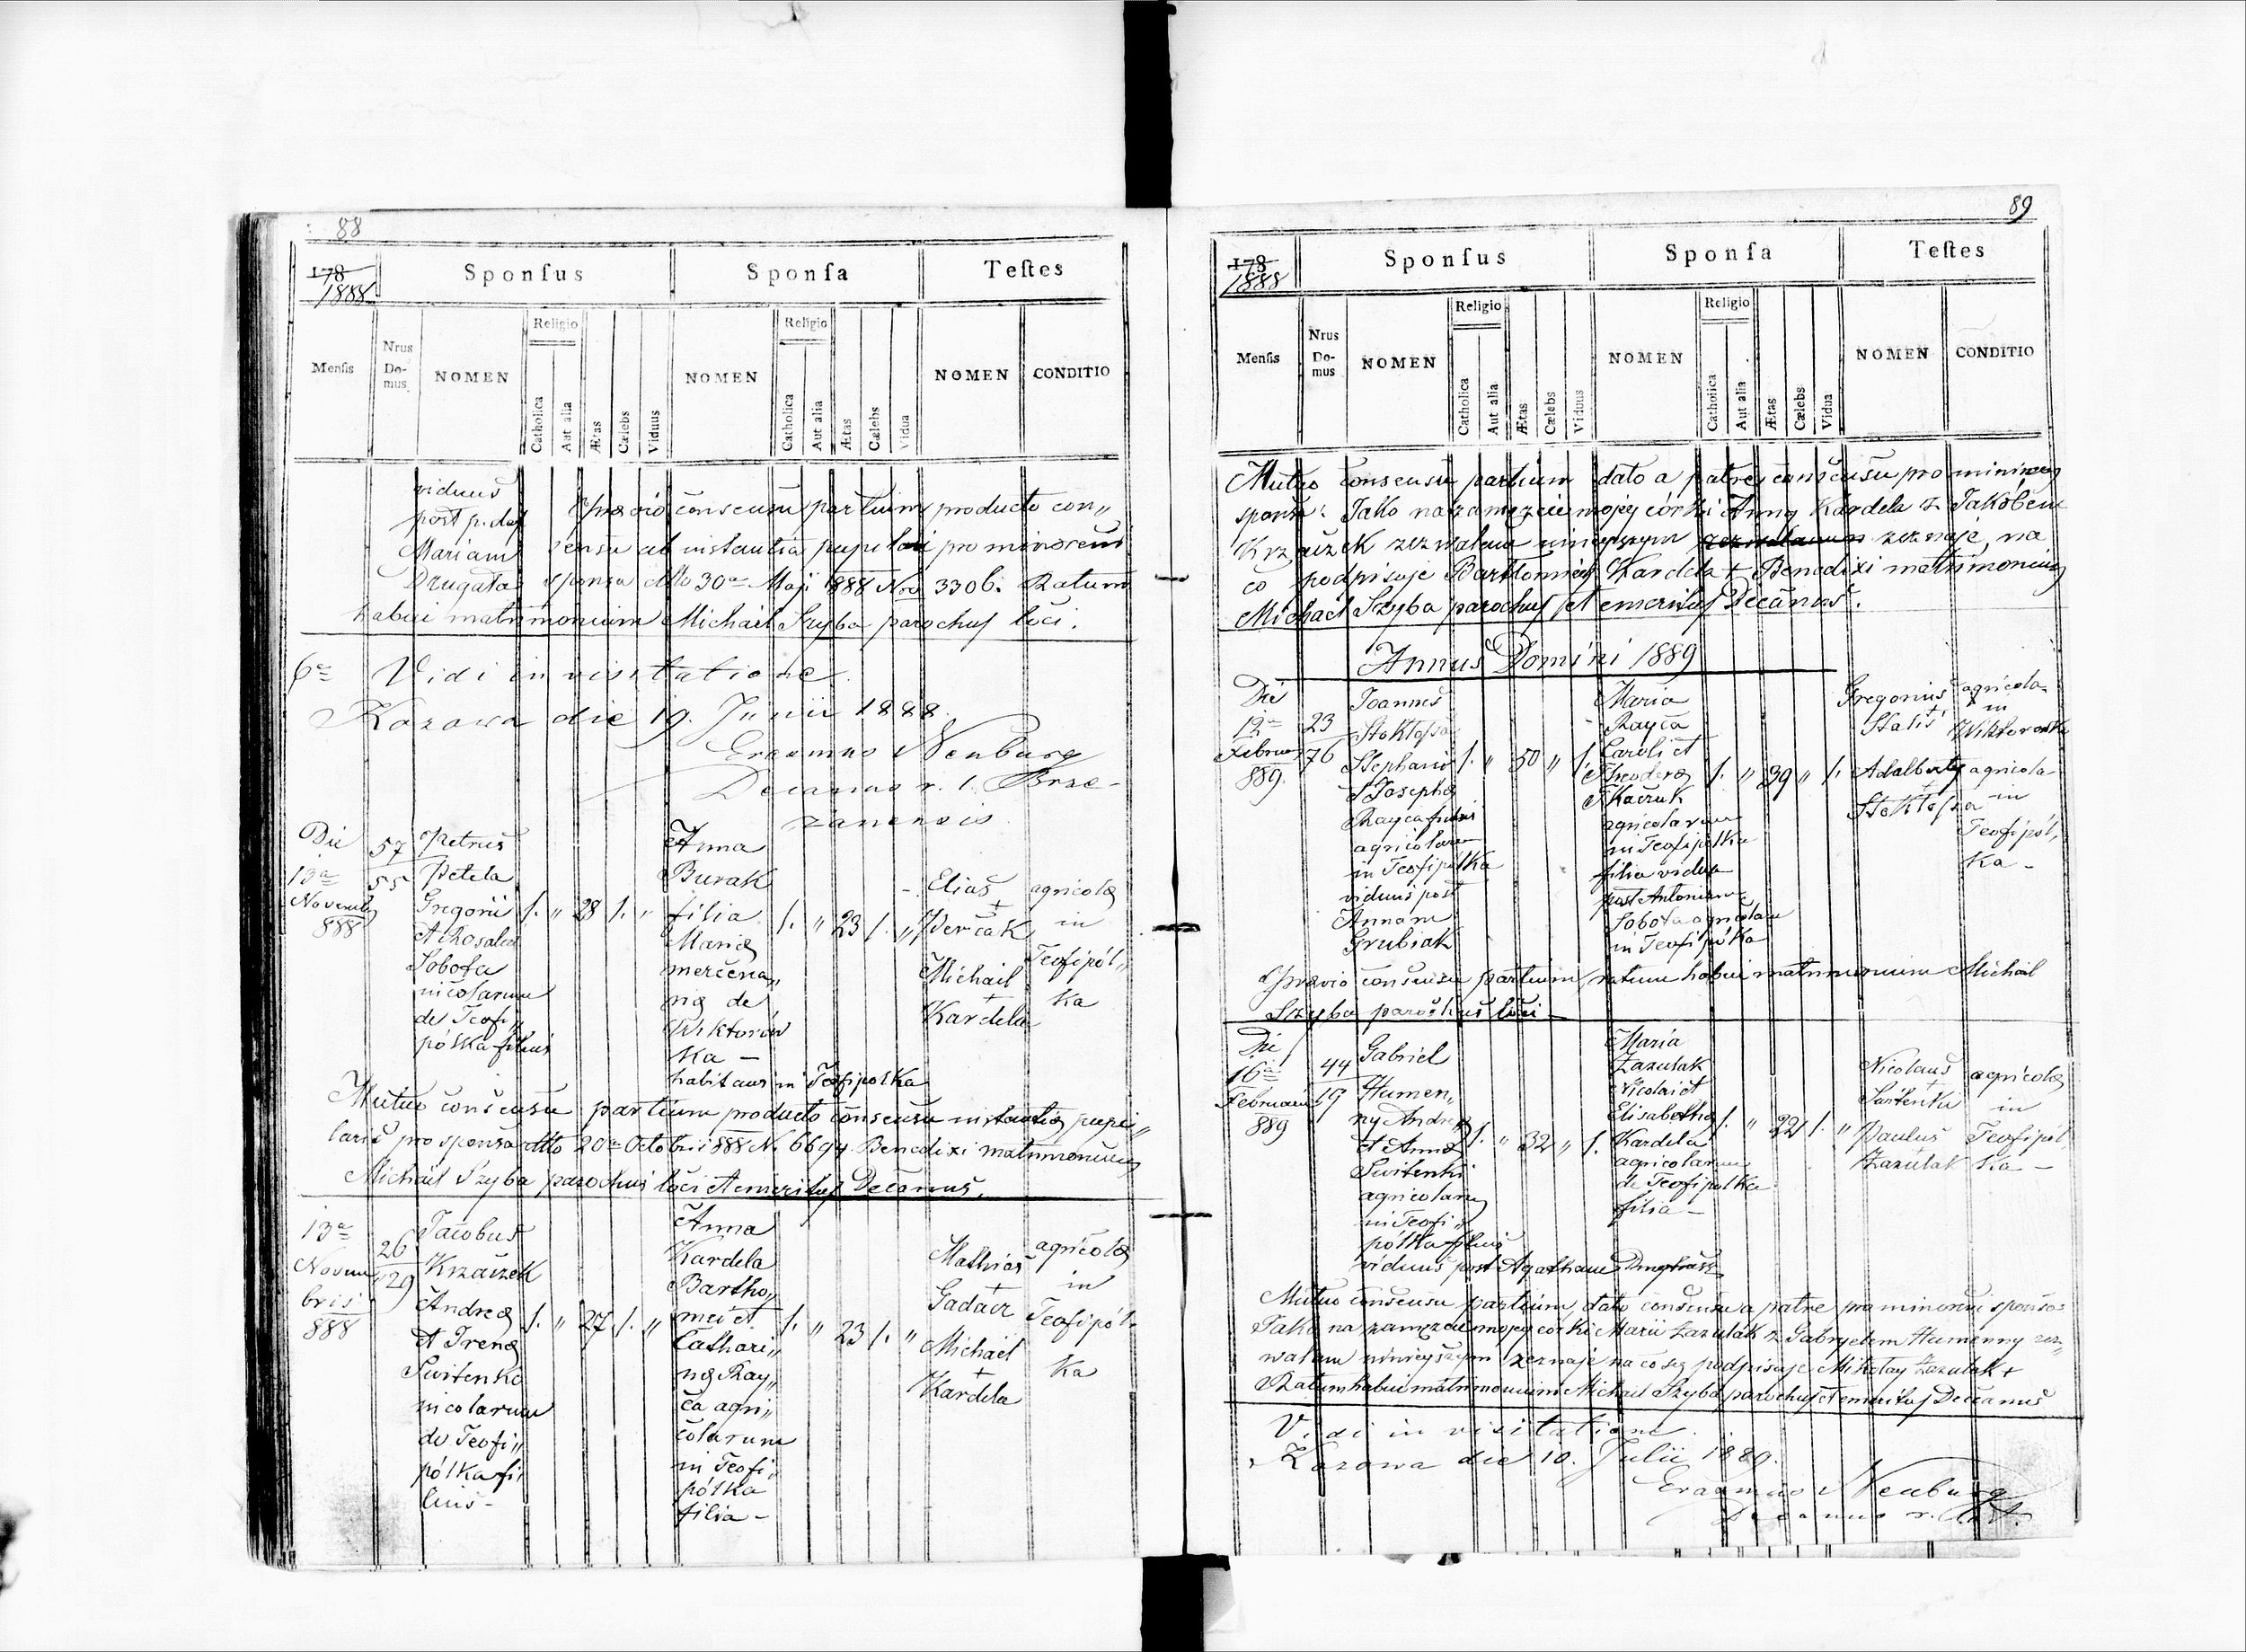 88
178
1888
Sponſus
Sponſa
Teſtes
Menſis
Nrus Domus
NOMEN
Religio
Catholica
Aut alia
Ætas
Cælebs
Viduus
NOMEN
Religio
Catholica
Aut alia
Ætas
Cælebs
Vidua
NOMEN
CONDITIO
viduus
post p. def
Mariam
Drugała
consensu partium producto con„
sensu ab instantia pupilari pro minoreni
sponsa dtto 30a Maji 888 Nro 3306. Ratum
habui matrimonium Michael Szyba parochus loci.
6a Vidi in visitatione.
Kozowa die 19. Junii 1888.
Erasmus Neuburg
Decanus r. l. Brze-
zanensis
Die
13a
Novembr
888
57
55
Petrus
Petela
Gregorii
et Rosalia
Sobota
nicolarum
de Teofi„
pólka filius
1. „ 28 1. „
Anna
Burak
filia
Mariæ
mercena„
riæ de
Wiktorów
ka –
habitans in Teofipolka
1. „ 23 1. „
Elias
+
Werčak
Michael
+
Kardela
agricolæ
in
Teofipól„
ka
Mutuo consensu partium producto consensu instantiæ pupi„
laris pro sponsa dtto 20a Octobris 888 N. 6694 Benedixi matrimonium
Michael Szyba parochus loci et emeritus Decanus.
13a
Novem
bris
888
26
29
Jacobus
Krzaczek
Andreæ
et Irenæ
Switenko
nicolarum
de Teofi„
pólka fi
lius –
1. „ 27 1. „
Anna
Kardela
Bartho„
mei et
Cathari„
næ Ray„
ca agri„
colarum
in Teofi„
pólka
filia –
1. „ 23 1. „
Mathias
+
Gadacz
Michael
+
Kardela
agricolæ
in
Teofipól„
ka
89
178
1888
Sponſus
Sponſa
Teſtes
Menſis
Nrus Do-mus
NOMEN
Religio
Catholica
Aut alia
Ætas
Cælebs
Viduus
NOMEN
Religio
Catholica
Aut alia
Ætas
Cælebs
Vidua
NOMEN
CONDITIO
Mutuo consensu partium dato a patre consensu pro minoren
sponsa: Jako na zamęzcie mojej córki Anny Kardela z Jakóbem
Krzaczek zezwalam niniejszym zezwalam zeznaję, na
co podpisuję Bartłomiej Kardela + Benedixi matrimonium
Michael Szyba parochus et emeritus Decanus.
Annus Domini 1889
Die
12a
Februar
889.
23
76
Joannes
Stoktosa
Stephani
et Josephæ
Rayca filius
agricolarum
in Teofipólka
viduus post
Annam
Grubiak
1. „ 50 „ 1.
Maria
Rayca
Caroli et
Theodoræ
Tkaczuk
agricolarum
in Teofipólka
filia vidua
post Antonium
Sobota agricolam
in Teofipólka
1. „ 39 „ 1.
Gregorius
+
Stalis
Adalbertus
+
Stoktosa
agricola
in
Wiktorowka
agricola
in
Teofipól„
ka –
Prævio consensu partium ratum habui matrimonium Michael
Szyba parochus loci –
Die
16a
Februarii
889
44
19
Gabriel
Humen„
ny Andreæ
et Annæ
Switenki
agricolarum
in Teofi„
pólka filius
viduus post Agatham
1. „ 32 „ 1.
Maria
Zazulak
Nicolai et
Elisabethæ
Kardela
agricolarum
de Teofipolka
filia –
1. „ 22 1. „
Nicolaus
+
Switenki
Paulus
+
Zazulak
agricolæ
in
Teofipól
ka –
Mutuo consensu partium, dato consensu a patre pro minoreni sponsa:
Jako na zamęzcie mojej córki Marii Zazulak z Gabryelem Humenny zez„
walam niniejszym zeznaję na co się podpisuję Mikołay Zazulak +
Ratum habui matrimonium Michael Szyba parochus et emeritus Decanus
Vidi in visitatione.
Kozowa die 10. Julii 1889.
Erasmus Neuburg
Decanus r. l.